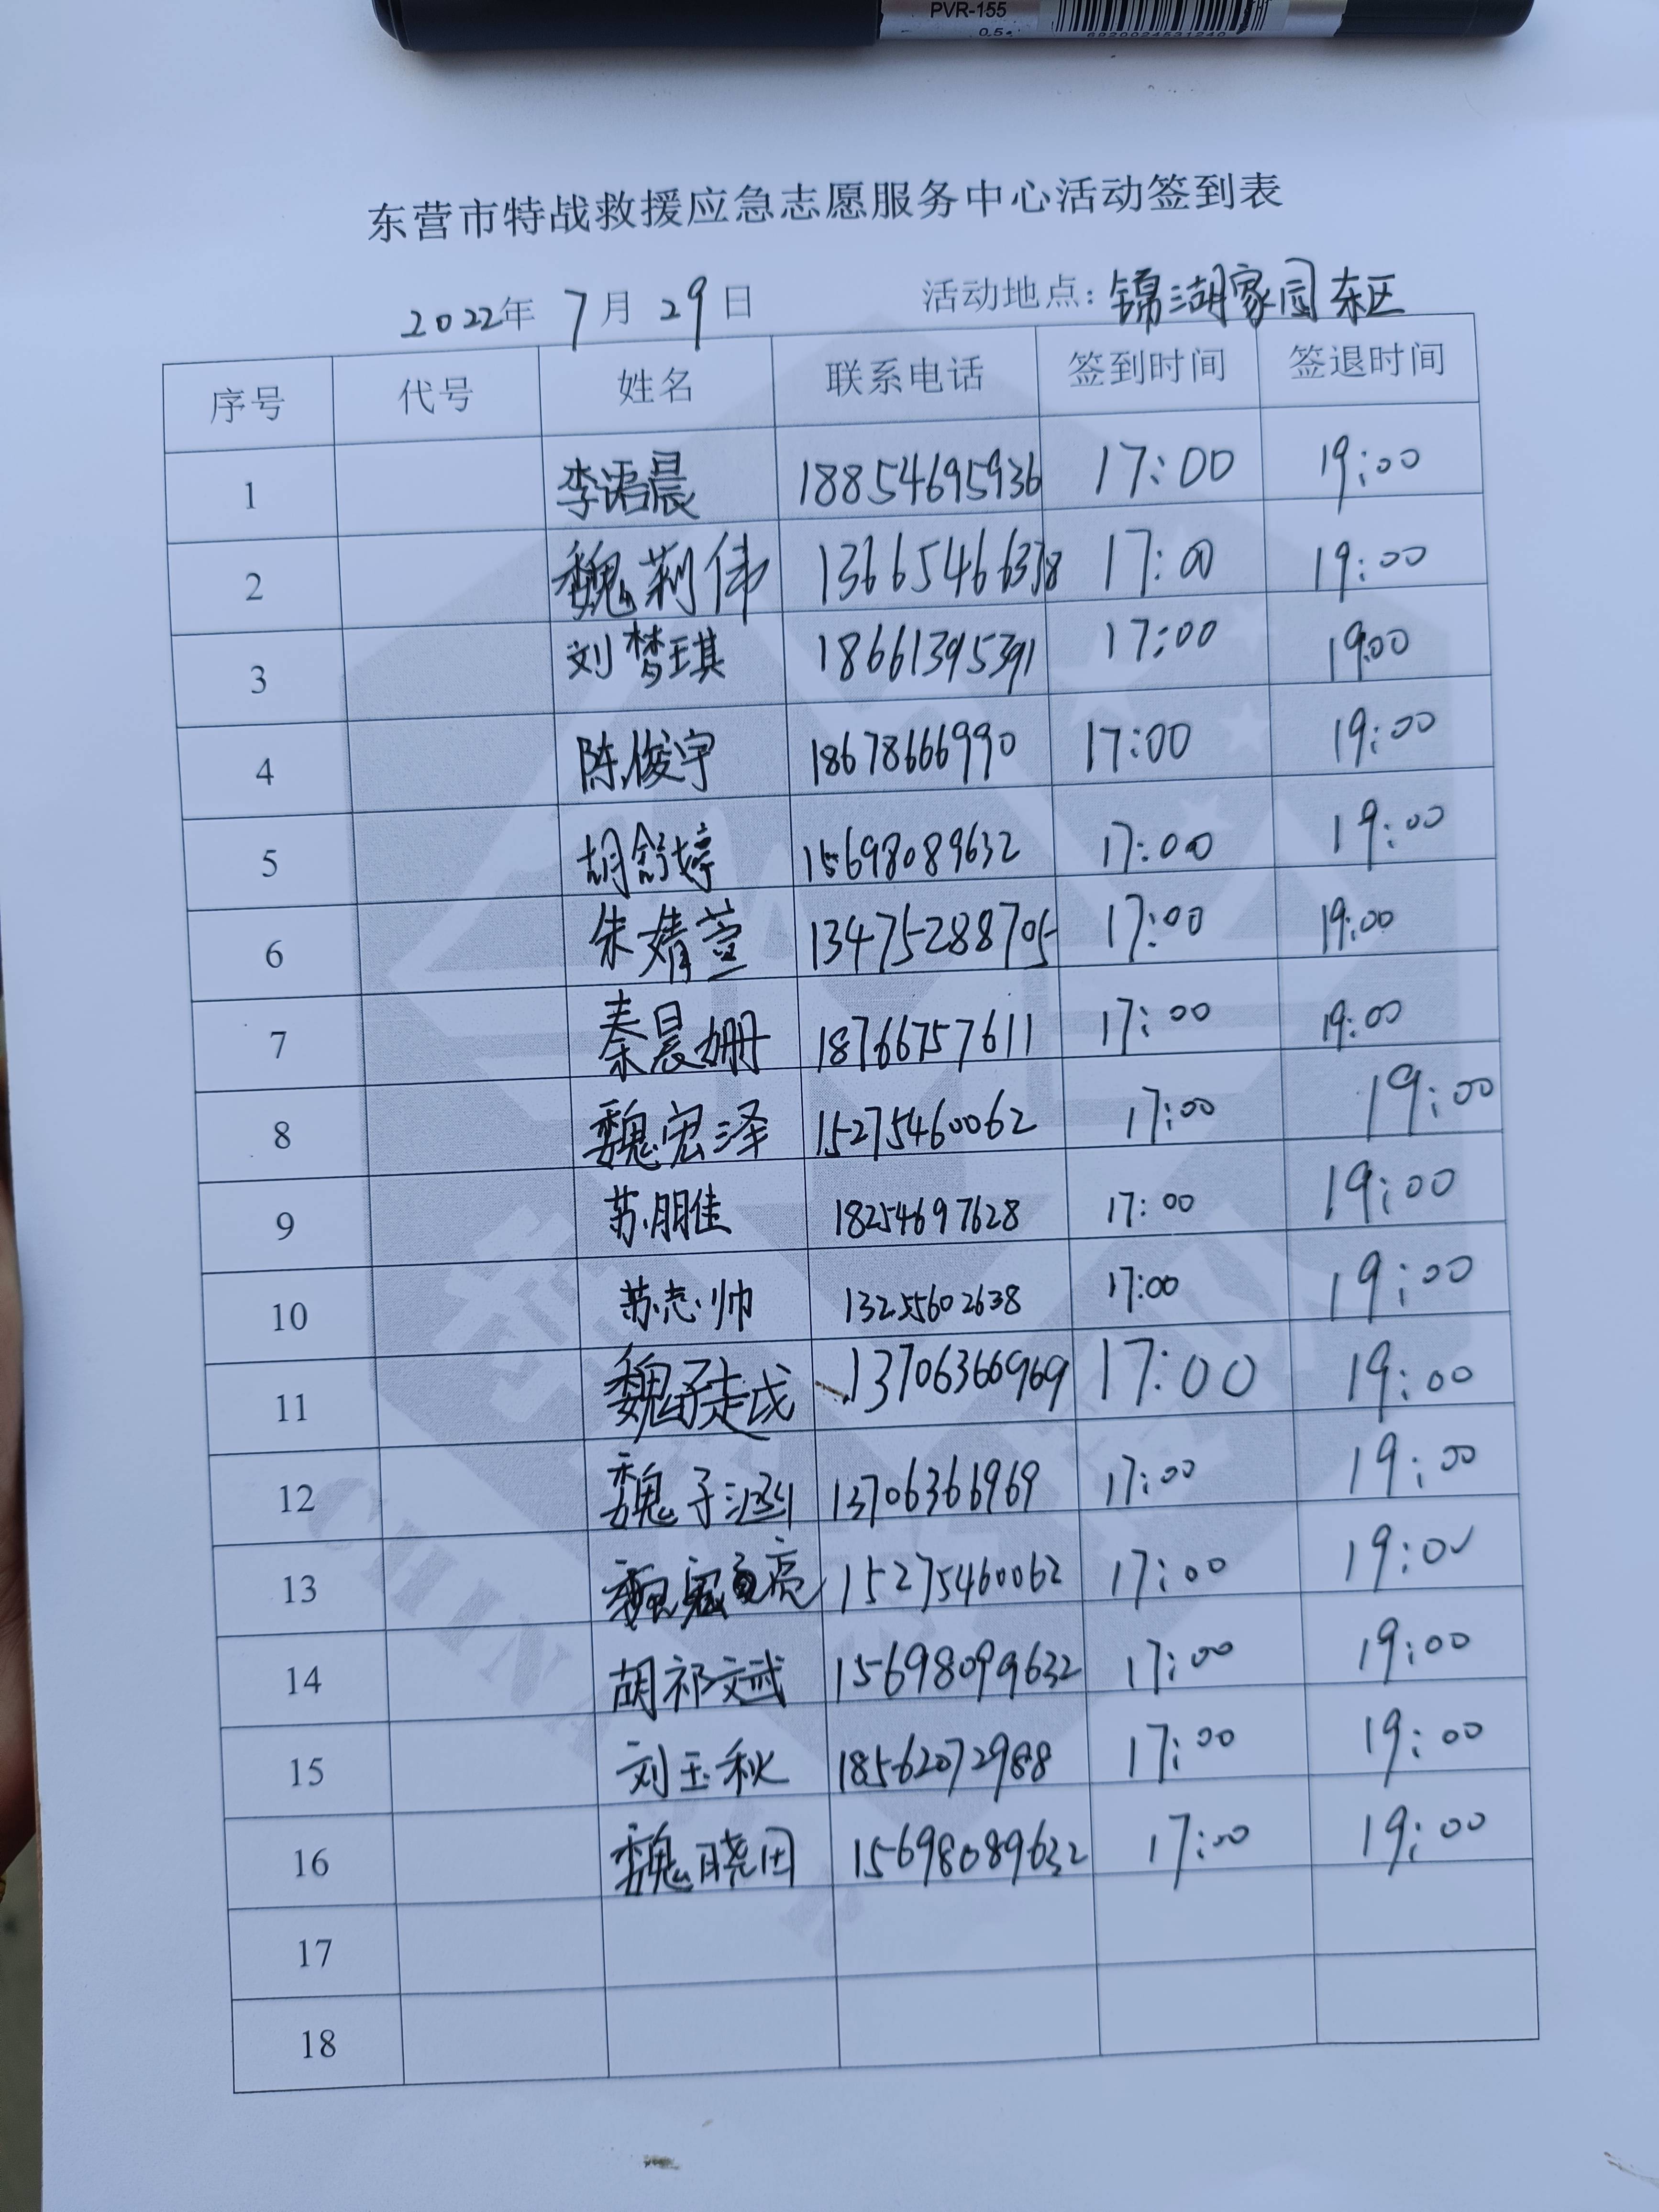 PVR-155
0.5
6920024531240
东营市特战救援应急志愿服务中心活动签到表
2022年 7月 29日 活动地点: 锦湖家园东区
序号 代号 姓名 联系电话 签到时间 签退时间
1 李诺晨 18854695936 17:00 19:00
2 魏莉伟 13665466378 17:00 19:00
3 刘梦琪 18661395391 17:00 19:00
4 陈俊宇 18678666990 17:00 19:00
5 胡舒婷 15698089632 17:00 19:00
6 朱婧萱 13475288705 17:00 19:00
7 秦晨姗 18766757611 17:00 19:00
8 魏宏泽 15275460062 17:00 19:00
9 苏朋佳 18254697628 17:00 19:00
10 苏志帅 13255602638 17:00 19:00
11 魏子 13706366969 17:00 19:00
12 魏子涵 13706366969 17:00 19:00
13 魏宏亮 15275460062 17:00 19:00
14 胡祁斌 15698099632 17:00 19:00
15 刘玉秋 18562072988 17:00 19:00
16 魏晓田 15698089632 17:00 19:00
17
18
CHINA